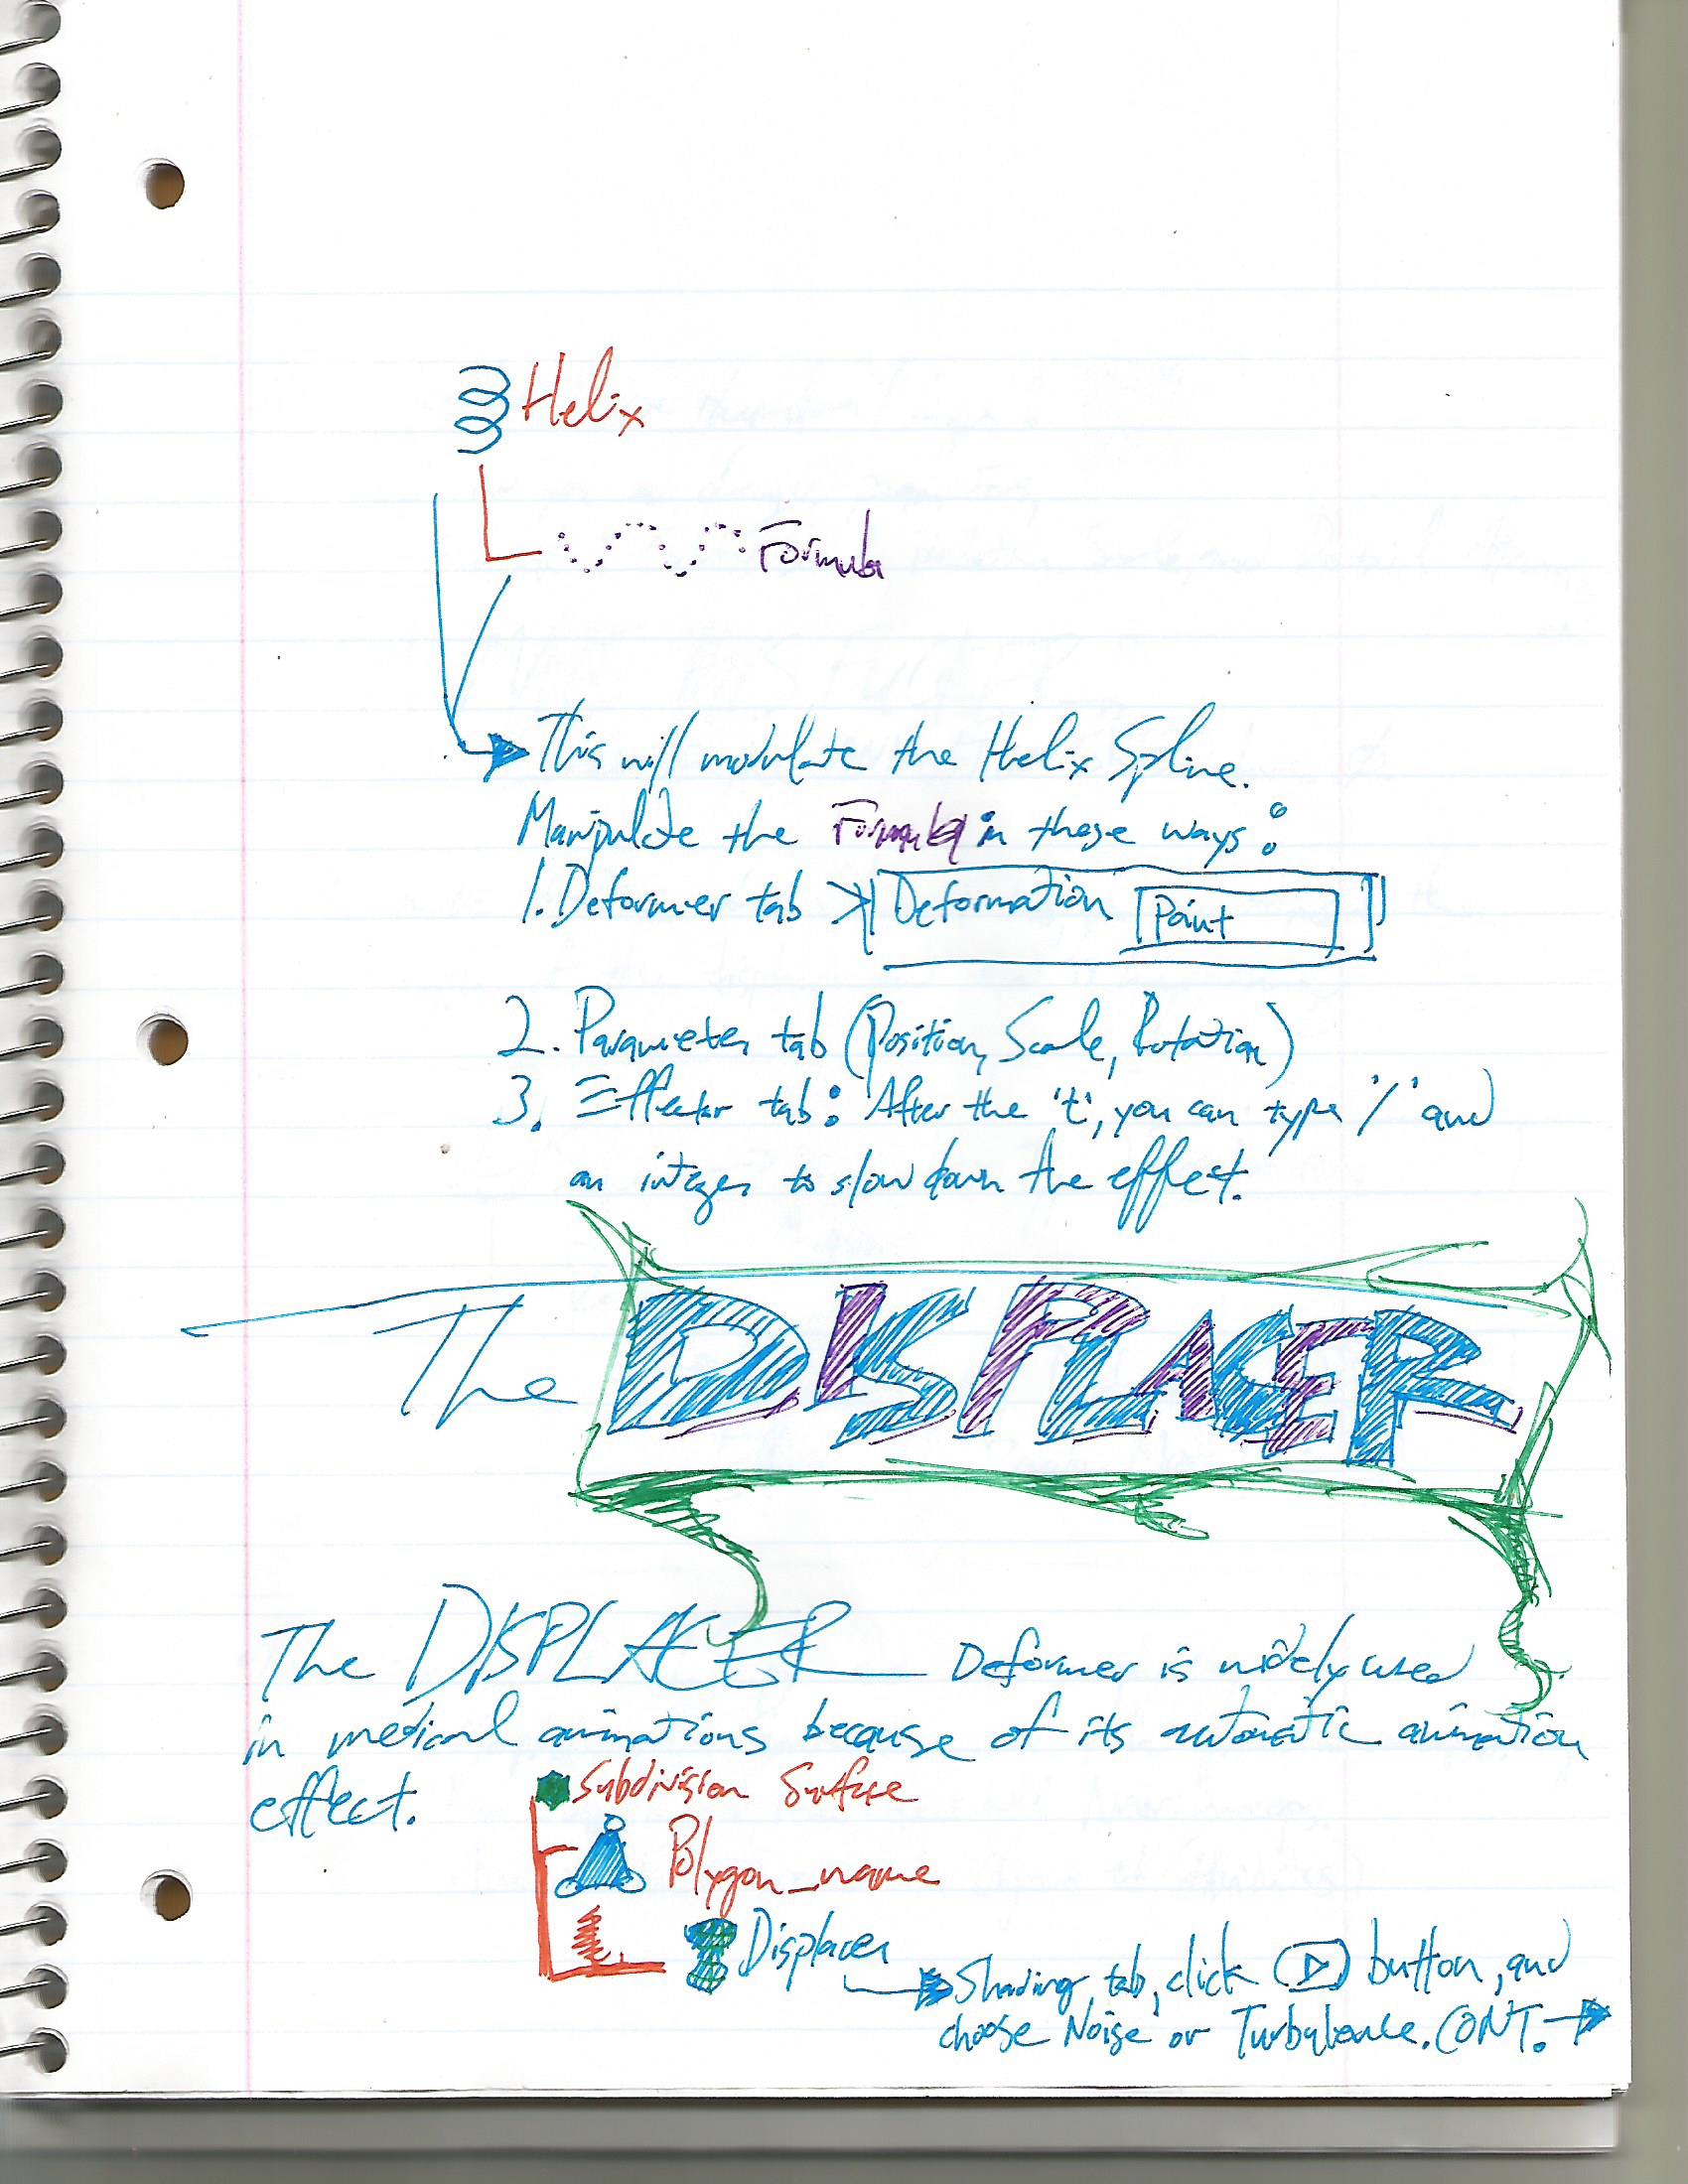 Helix
Formula
This will modulate the Helix Spline.
Manipulate the Formula in these ways:
1. Deformer tab > Deformation Point
2. Parameter tab (Position, Scale, Rotation)
3. Effector tab: After the 't', you can type '/' and
an integer to slow down the effect.
The DISPLACER
The DISPLACER Deformer is widely used
in medical animations because of its automatic animation
effect.
Subdivision Surface
Polygon_name
Displacer
Shading tab, click button, and
choose Noise or Turbulence. CONT.